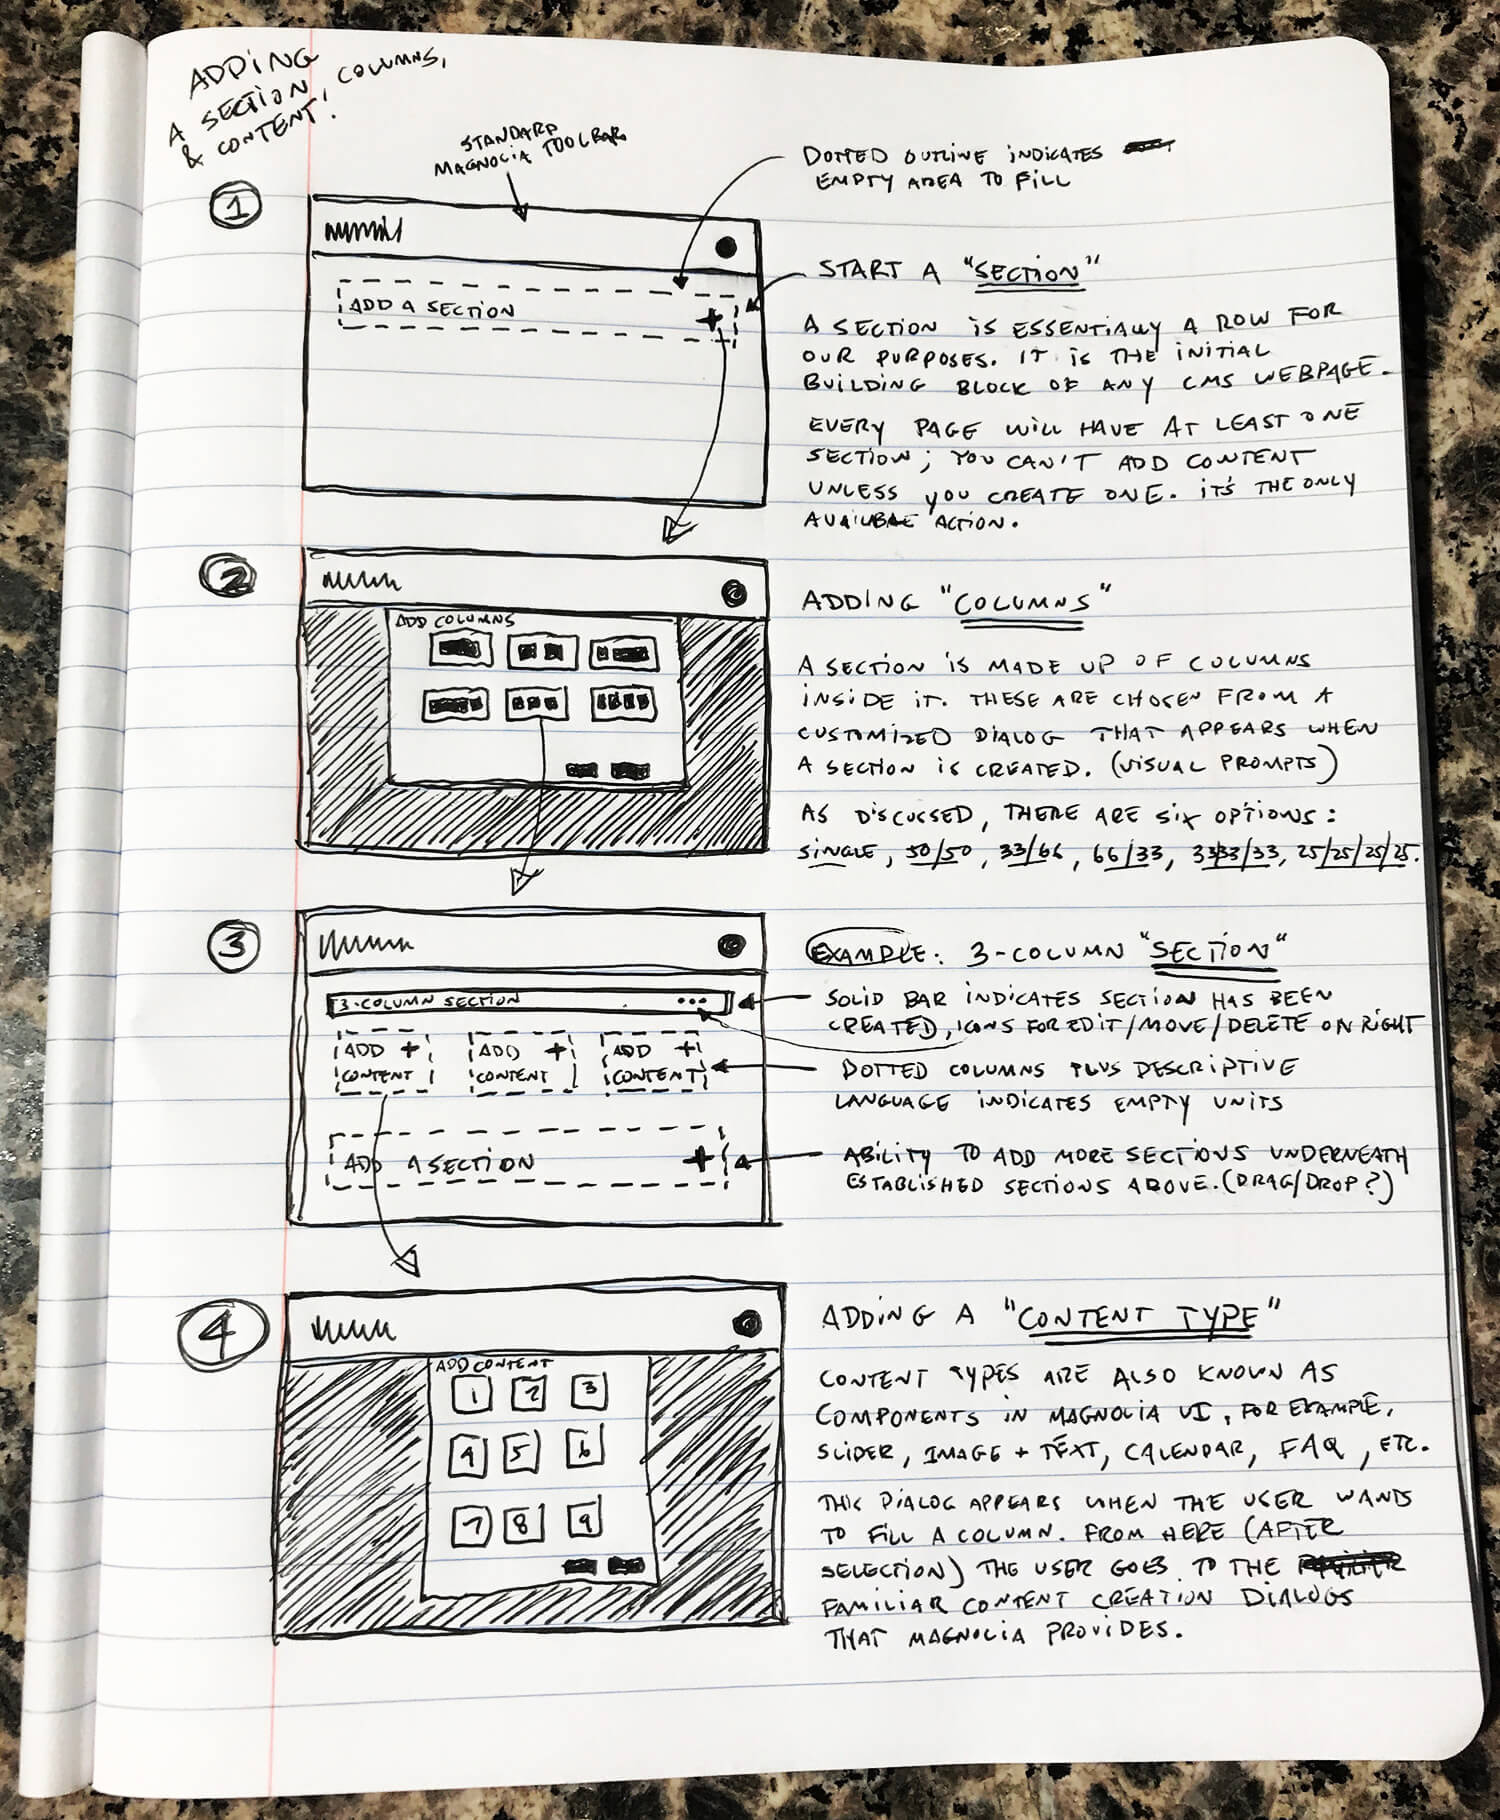 ADDING
A SECTION, COLUMNS,
& CONTENT!
STANDARD
MAGNOLIA TOOLBAR
DOTTED OUTLINE INDICATES
EMPTY AREA TO FILL
1
ADD A SECTION +
START A "SECTION"
A SECTION IS ESSENTIALLY A ROW FOR
OUR PURPOSES. IT IS THE INITIAL
BUILDING BLOCK OF ANY CMS WEBPAGE.
EVERY PAGE WILL HAVE AT LEAST ONE
SECTION; YOU CAN'T ADD CONTENT
UNLESS YOU CREATE ONE. IT'S THE ONLY
AVAILABLE ACTION.
2
ADD COLUMNS
ADDING "COLUMNS"
A SECTION IS MADE UP OF COLUMNS
INSIDE IT. THESE ARE CHOSEN FROM A
CUSTOMIZED DIALOG THAT APPEARS WHEN
A SECTION IS CREATED. (VISUAL PROMPTS)
AS DISCUSSED, THERE ARE SIX OPTIONS:
SINGLE, 50/50, 33/66, 66/33, 33/33/33, 25/25/25/25.
3
3-COLUMN SECTION ...
ADD + ADD + ADD +
CONTENT CONTENT CONTENT
ADD A SECTION +
EXAMPLE: 3-COLUMN "SECTION"
SOLID BAR INDICATES SECTION HAS BEEN
CREATED, ICONS FOR EDIT/MOVE/DELETE ON RIGHT
DOTTED COLUMNS PLUS DESCRIPTIVE
LANGUAGE INDICATES EMPTY UNITS
ABILITY TO ADD MORE SECTIONS UNDERNEATH
ESTABLISHED SECTIONS ABOVE. (DRAG/DROP?)
4
ADD CONTENT
1 2 3
4 5 6
7 8 9
ADDING A "CONTENT TYPE"
CONTENT TYPES ARE ALSO KNOWN AS
COMPONENTS IN MAGNOLIA UI, FOR EXAMPLE,
SLIDER, IMAGE + TEXT, CALENDAR, FAQ, ETC.
THIS DIALOG APPEARS WHEN THE USER WANTS
TO FILL A COLUMN. FROM HERE (AFTER
SELECTION) THE USER GOES TO THE
FAMILIAR CONTENT CREATION DIALOGS
THAT MAGNOLIA PROVIDES.